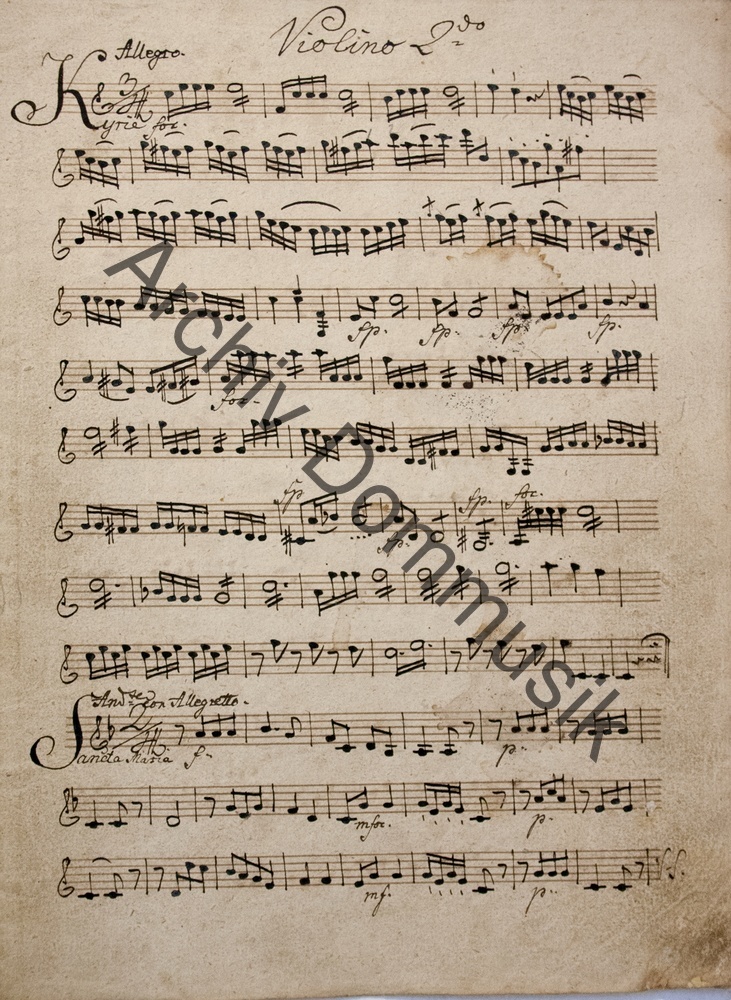 Violino 2do
Allegro.
Kyrie for:
fp. fp. fp. fp.
for.
fp fp. for.
fp.
Andte con Allegretto.
Sancta Maria f. p.
mfor. p.
mf. p.
Archiv Dommusik